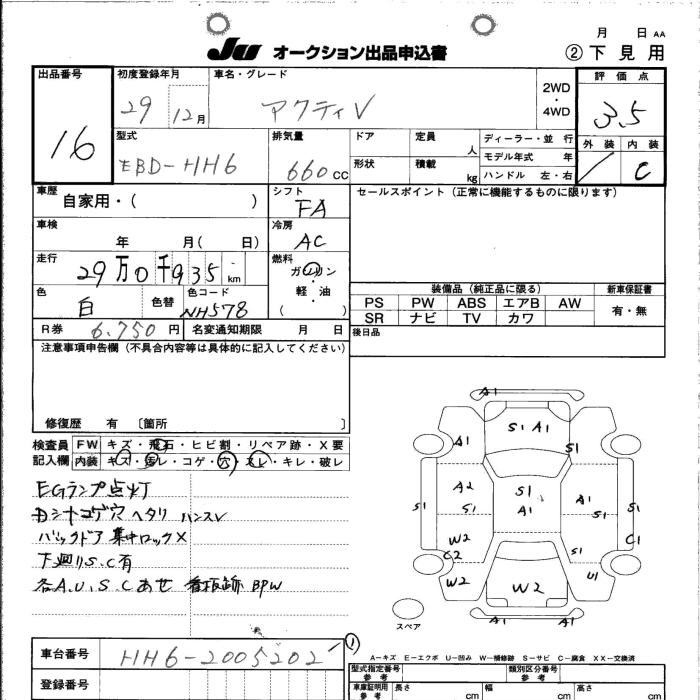 月 日 AA
JU オークション出品申込書 ② 下見用
出品番号 16
初度登録年月 29 12月
車名・グレード アクティV
2WD・4WD
評価点 3.5
外装 内装 C
型式 EBD-HH6
排気量 660 cc
ドア 定員 人
形状 積載 kg
ディーラー・並 行
モデル年式 年
ハンドル 左・右
車歴 自家用・( )
シフト FA
セールスポイント (正常に機能するものに限ります)
車検 年 月( 日)
冷房 AC
走行 29万0千935 km
燃料 ガソリン・軽油 ( )
色 白 色替 色コード NH578
装備品 (純正品に限る) 新車保証書
PS PW ABS エアB AW 有・無
SR ナビ TV カワ
R券 6.750 円 名変通知期限 月 日
後日品
注意事項申告欄 (不具合内容等は具体的に記入してください)
修復歴 有 〔箇所 〕
検査員 FW キズ・飛石・ヒビ割・リペア跡・X要
記入欄 内装 キズ・汚レ・コゲ・穴・スレ・キレ・破レ
EGランプ点灯
Dシートコゲ穴 ヘタリ ハンスレ
バックドア 集中ロックX
下廻りS.C有
各A.U.S.Cあせ 看板跡 BPW
A1
S1 A1
A1 S1
A2 S1 A1
S1 S1 A1 S1 S1
W2 C2 S1 C1
W2 W2 U1
A1 A1
スペア
①
A−キズ E−エクボ U−凹み W−補修跡 S−サビ C−腐食 XX−交換済
車台番号 HH6-2005202
型式指定番号 類別区分番号
参考 参考
登録番号
車庫証明用 参考 長さ cm 幅 cm 高さ cm